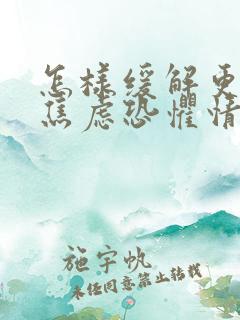 怎样缓解更
焦虑恐惧情
施宇帆
未经同意禁止转载